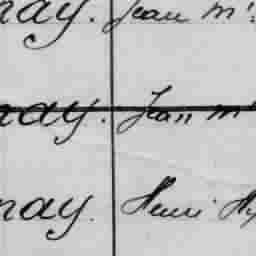 nay. Jean Mc
nay. Jean Mc
nay. Henri Hy